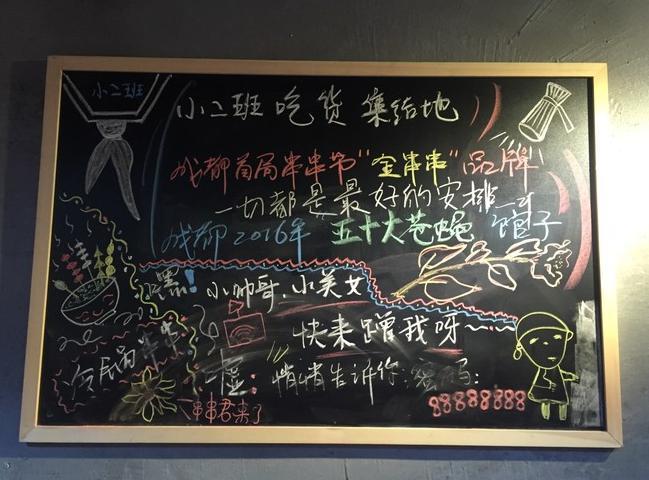 小二班
小二班吃货集结地
成都首届串串节"金串串"品牌
一切都是最好的安排
成都2016年五十大苍蝇馆子
嘿!小帅哥、小美女
快来蹭我呀~~~
冷锅串串
嘘:悄悄告诉你,密码:
88888888
串串君来了